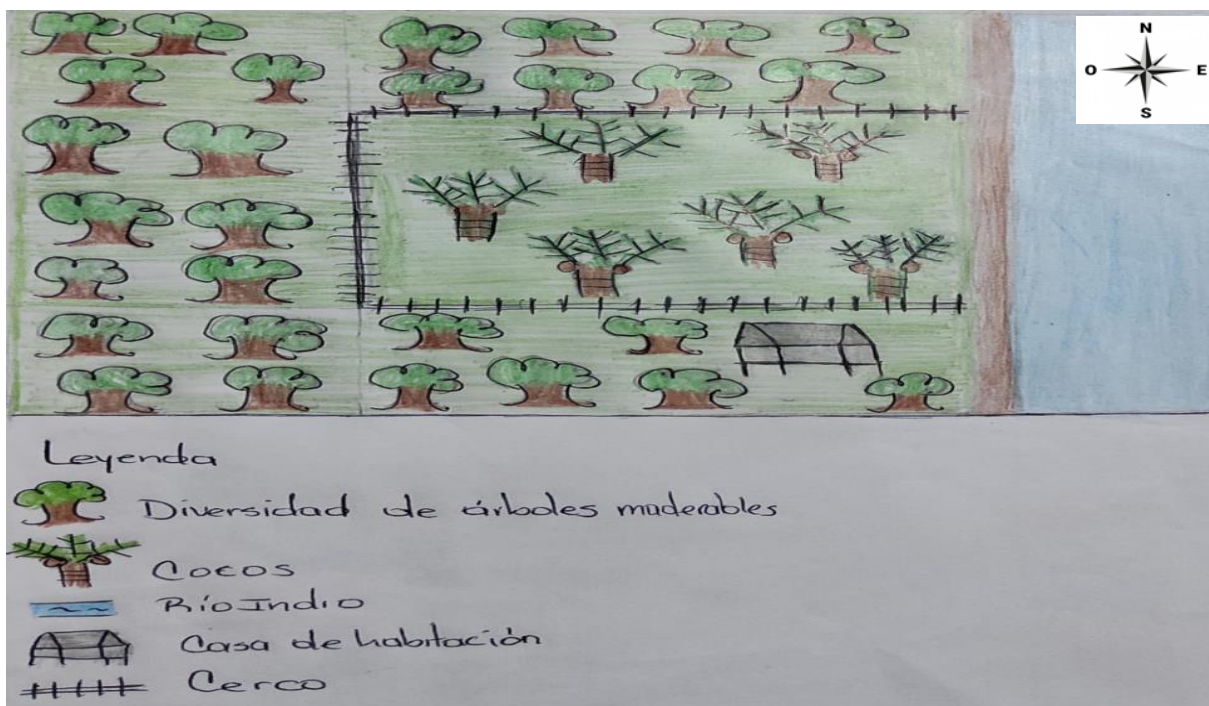 N
O E
S
Leyenda
Diversidad de árboles maderables
Cocos
Río Indio
Casa de habitación
Cerco